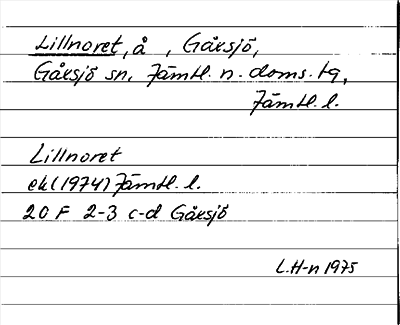 Lillnoret, å , Gåxsjö,
Gåxsjö sn, Jämtl. n. doms. tg,
Jämtl. l.
Lillnoret
ekl(1974) Jämtl. l.
20 F 2-3 c-d Gåxsjö
L.H-n 1975